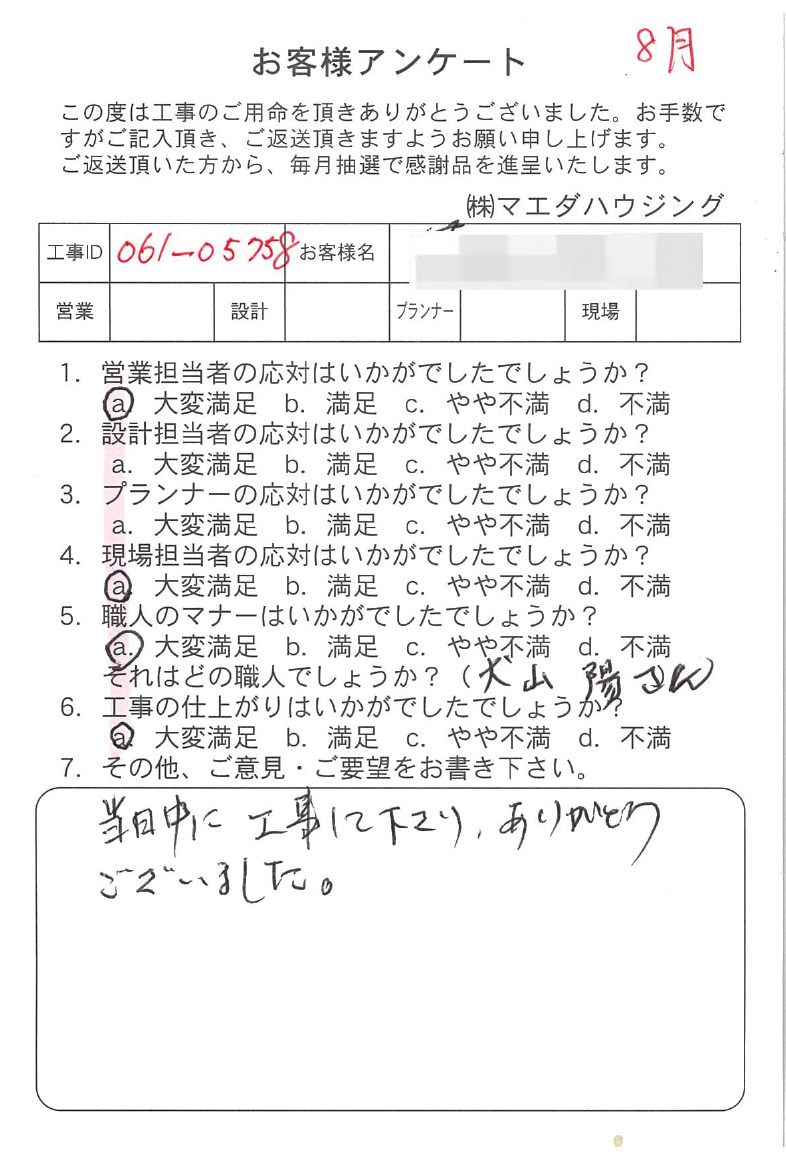 8月
お客様アンケート
この度は工事のご用命を頂きありがとうございました。お手数で
すがご記入頂き、ご返送頂きますようお願い申し上げます。
ご返送頂いた方から、毎月抽選で感謝品を進呈いたします。
㈱マエダハウジング
工事ID 061-05758 お客様名
営業 設計 プランナー 現場
1. 営業担当者の応対はいかがでしたでしょうか?
a. 大変満足 b. 満足 c. やや不満 d. 不満
2. 設計担当者の応対はいかがでしたでしょうか?
a. 大変満足 b. 満足 c. やや不満 d. 不満
3. プランナーの応対はいかがでしたでしょうか?
a. 大変満足 b. 満足 c. やや不満 d. 不満
4. 現場担当者の応対はいかがでしたでしょうか?
a. 大変満足 b. 満足 c. やや不満 d. 不満
5. 職人のマナーはいかがでしたでしょうか?
a. 大変満足 b. 満足 c. やや不満 d. 不満
それはどの職人でしょうか?(犬山 陽さん)
6. 工事の仕上がりはいかがでしたでしょうか?
a. 大変満足 b. 満足 c. やや不満 d. 不満
7. その他、ご意見・ご要望をお書き下さい。
当日中に工事して下さり、ありがとう
ございました。